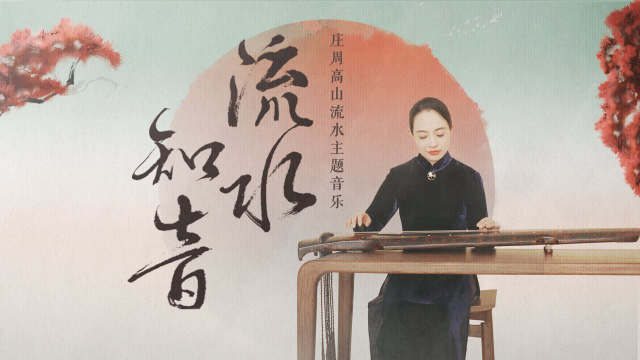 流水
知音
庄周高山流水主题音乐